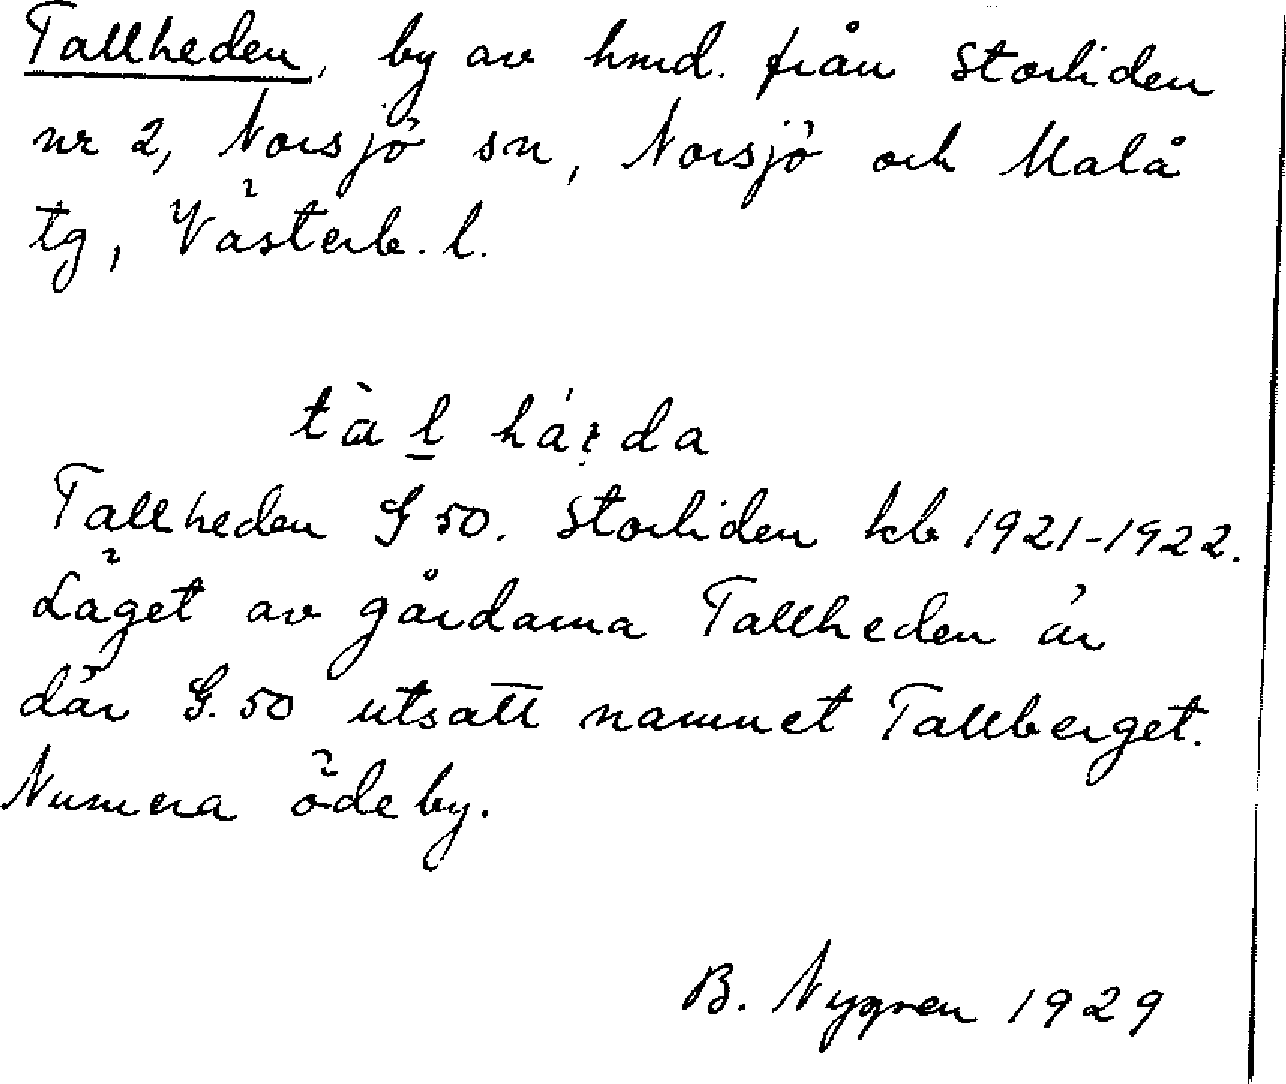 Tallheden, by av hmd. från Storliden
nr 2, Norsjö sn, Norsjö och Malå
tg, Västerb. l.
tàl há da
Tallheden G 50. Storliden kb 1921-1922.
Läget av gårdarna Tallheden är
där G. 50 utsatt namnet Tallberget.
Numera ödeby.
B. Nygren 1929